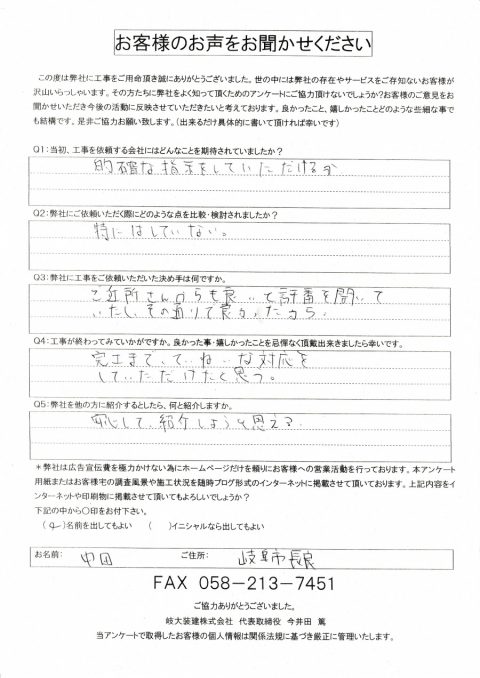 お客様のお声をお聞かせください
この度は弊社に工事をご用命頂き誠にありがとうございました。世の中には弊社の存在やサービスをご存知ないお客様が
沢山いらっしゃいます。その方たちに弊社をよく知って頂くためのアンケートにご協力頂けないでしょうか?お客様のご意見をお
聞かせいただき今後の活動に反映させていただきたいと考えております。良かったこと、嬉しかったことどのような些細な事で
も結構です。是非ご協力お願い致します。(出来るだけ具体的に書いて頂ければ幸いです)
Q1:当初、工事を依頼する会社にはどんなことを期待されていましたか?
的確な指示をしていただけるか
Q2:弊社にご依頼いただく際にどのような点を比較・検討されましたか?
特にはしていない。
Q3:弊社に工事をご依頼いただいた決め手は何ですか。
ご近所さんからも良いと評番を聞いて
いたし、その通りで良かったから。
Q4:工事が終わってみていかがですか。良かった事・嬉しかったことを忌憚なく頂戴出来きましたら幸いです。
完工まで、ていねいな対応を
していただけたと思う。
Q5:弊社を他の方に紹介するとしたら、何と紹介しますか。
安心して、紹介しようと思える
*弊社は広告宣伝費を極力かけない為にホームページだけを頼りにお客様への営業活動を行っております。本アンケート
用紙またはお客様宅の調査風景や施工状況を随時ブログ形式のインターネットに掲載させて頂いております。上記内容をイ
ンターネットや印刷物に掲載させて頂いてもよろしいでしょうか?
下記の中から〇印をお付下さい。
( )名前を出してもよい ( )イニシャルなら出してもよい
お名前: 中田 ご住所: 岐阜市長良
FAX 058-213-7451
ご協力ありがとうございました。
岐大装建株式会社 代表取締役 今井田 篤
当アンケートで取得したお客様の個人情報は関係法規に基づき厳正に管理いたします。